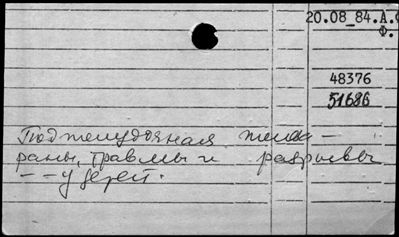 20.08_84.А.С
Ф.
48376
51686
Поджелудочная желез –
раны, травмы и разрывы
– – у детей.